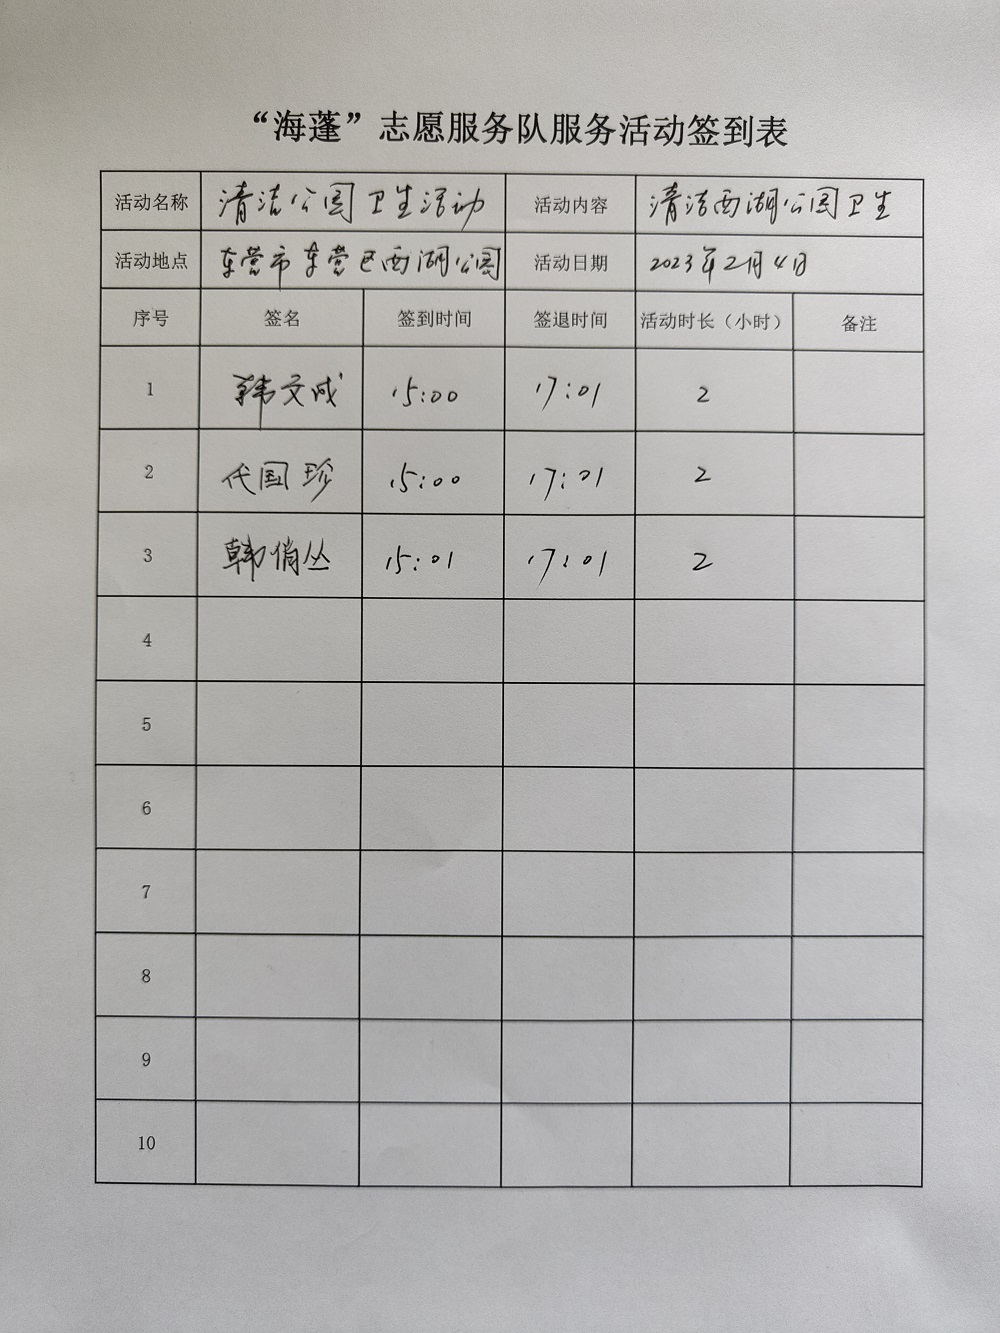 “海蓬”志愿服务队服务活动签到表
活动名称 清洁公园卫生活动 活动内容 清洁西湖公园卫生
活动地点 东营市东营区西湖公园 活动日期 2023年2月4日
序号 签名 签到时间 签退时间 活动时长（小时） 备注
1 韩文成 15:00 17:01 2
2 代国珍 15:00 17:01 2
3 韩俏丛 15:01 17:01 2
4
5
6
7
8
9
10